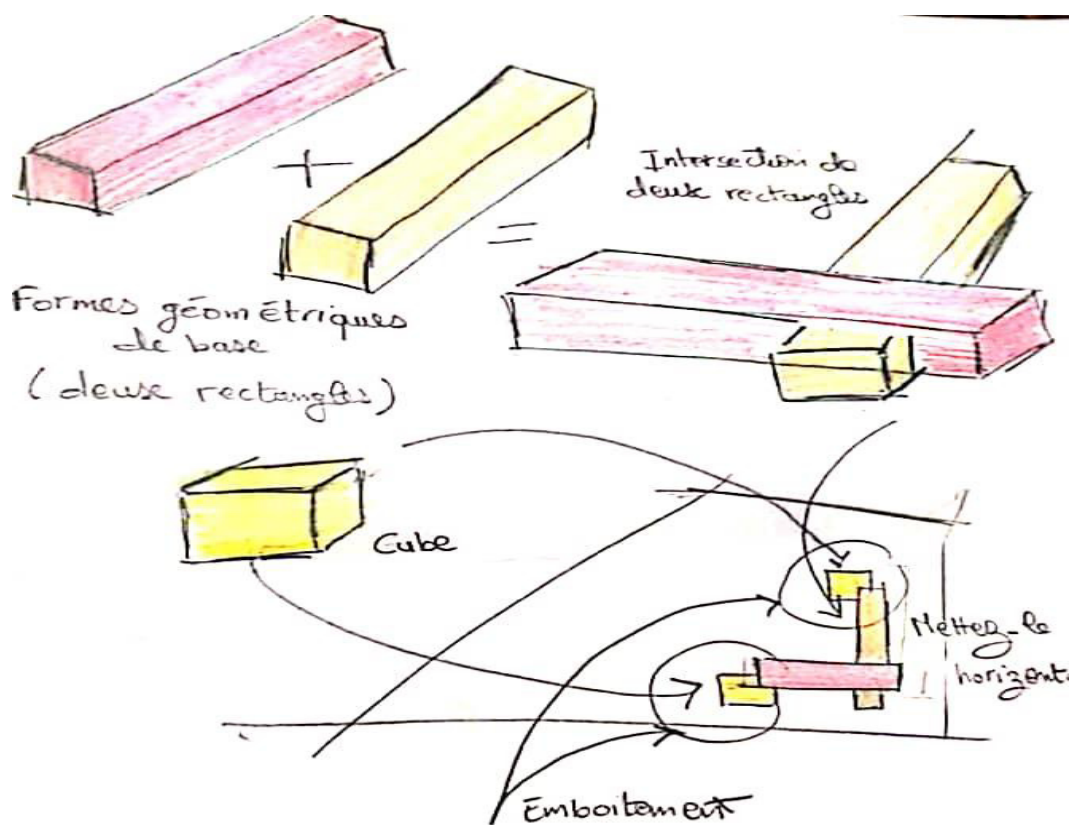 Intersection de
deux rectangles
+
=
Formes géométriques
de base
(deux rectangles)
Cube
Mettez-le
horizont
Emboitement